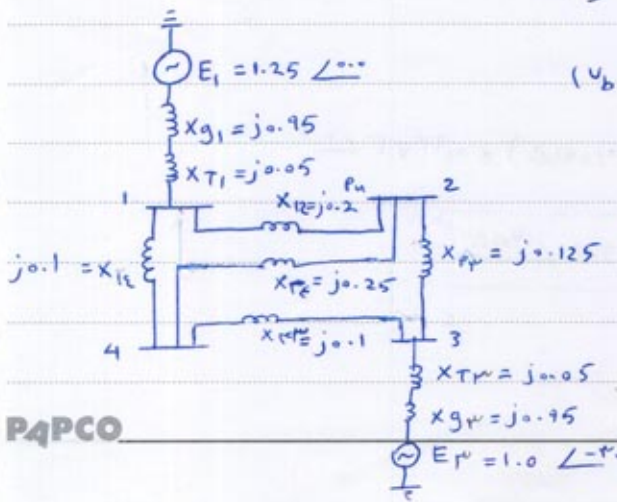 E₁ = 1.25 ∠۰.۰
(V_b
X_g₁ = j0.95
X_T₁ = j0.05
1
X₁₂ = j0.2
Pu
2
j0.1 = X₁₄
X_۲۴ = j0.25
X_۲۳ = j0.125
X_۴۳ = j0.1
4
3
X_T۳ = j0.05
X_g۳ = j0.95
PAPCO
E_۳ = 1.0 ∠-۳۰